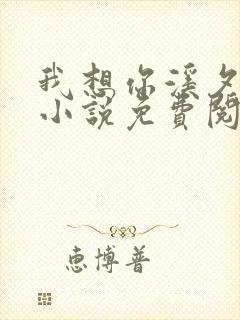 我想你溪夕
小説免費閱
惠博普